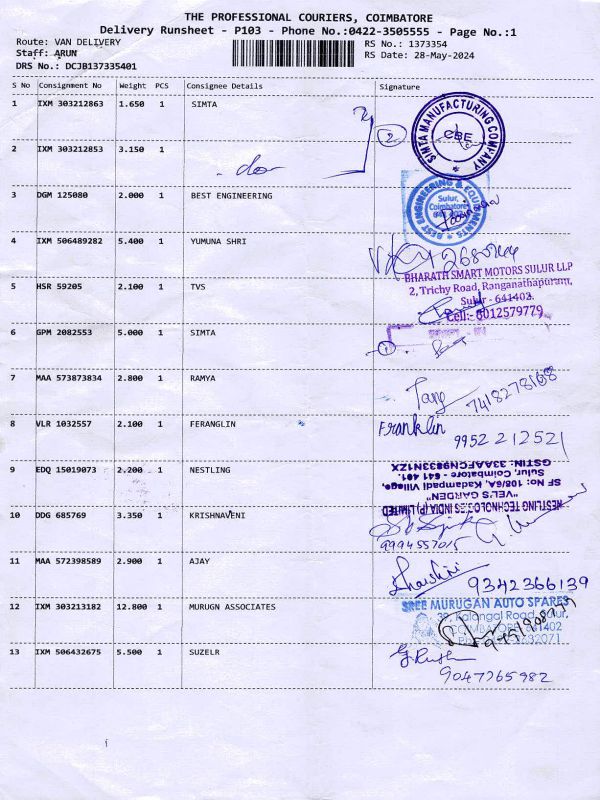 THE PROFESSIONAL COURIERS, COIMBATORE
Delivery Runsheet - P103 - Phone No.:0422-3505555 - Page No.:1
Route: VAN DELIVERY
Staff: ARUN
DRS No.: DCJB137335401
RS No.: 1373354
RS Date: 28-May-2024
S No Consignment No Weight PCS Consignee Details Signature
1 IXM 303212863 1.650 1 SIMTA
2
SIMTA MANUFACTURING COMPANY
CBE
2 IXM 303212853 3.150 1
3 DGM 125080 2.000 1 BEST ENGINEERING
BEST ENGINEERING & EQUIPMENTS
Sulur,
Coimbatore
4 IXM 506489282 5.400 1 YUMUNA SHRI
5 HSR 59205 2.100 1 TVS
BHARATH SMART MOTORS SULUR LLP
2, Trichy Road, Ranganathapuram,
Sulur - 641402.
Cell:- 6012579779
6 GPM 2082553 5.000 1 SIMTA
1
7 MAA 573873834 2.800 1 RAMYA
7418278168
8 VLR 1032557 2.100 1 FERANGLIN
Franklin
9952212521
9 EDQ 15019073 2.200 1 NESTLING
NESTLING TECHNOLOGIES INDIA (P) LIMITED
"VEL'S GARDEN"
SF No: 108/6A, Kadampadi Village,
Sulur, Coimbatore - 641 401.
GSTIN: 33AAFCN9833N1ZX
10 DDG 685769 3.350 1 KRISHNAVENI
9994557015
11 MAA 572398589 2.900 1 AJAY
9342366139
12 IXM 303213182 12.800 1 MURUGN ASSOCIATES
SREE MURUGAN AUTO SPARES
Kalangal Road, Sulur,
COIMBATORE 641402
13 IXM 506432675 5.500 1 SUZELR
9047765982